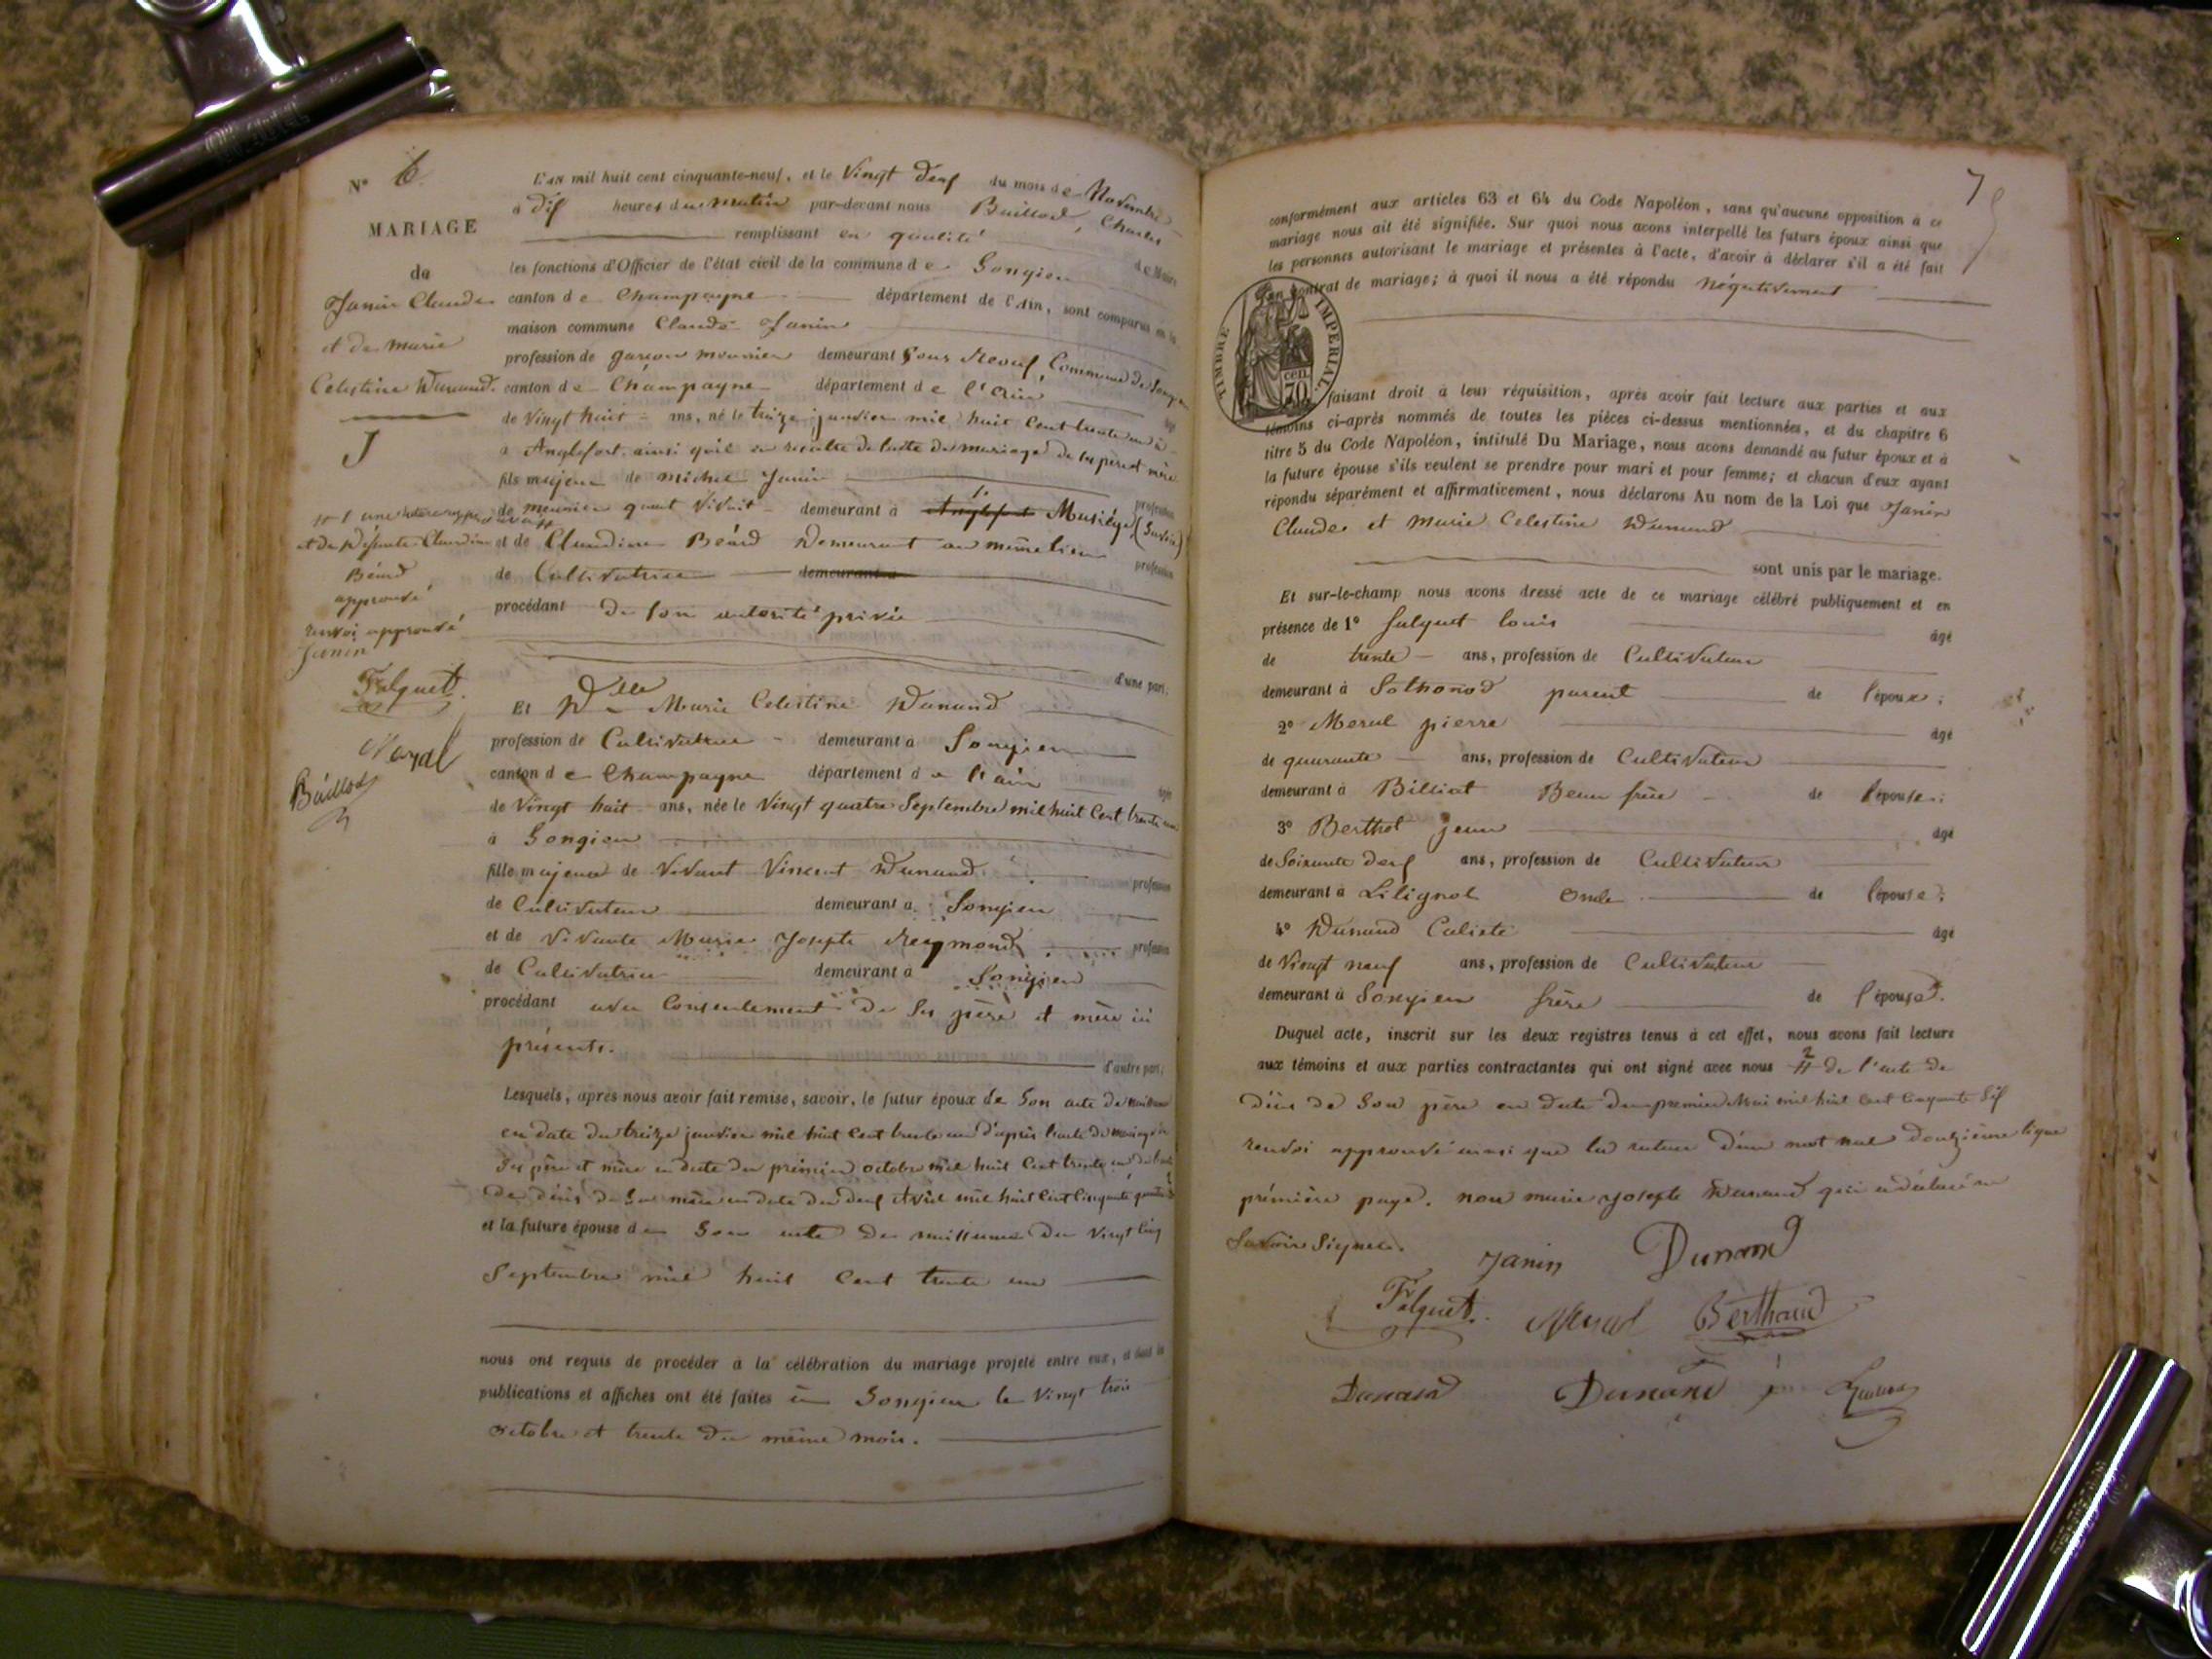 N° 6
MARIAGE
de
Janin Claude
et de marie
Celestine Dunand.
et de Défunte Claudine
Béard
approuvé
renvoi approuvé
Janin
Falquet
Meral
Baillod
L'an mil huit cent cinquante-neuf, et le Vingt deux du mois de Novembre
à dix heures du matin par-devant nous Baillod, Charles
remplissant en qualité de Maire
les fonctions d'Officier de l'état civil de la commune de Songieu
canton de Champagne département de l'Ain, sont comparus en la
maison commune Claude Janin
profession de garçon meunier demeurant Sous Commune de Songieu
canton de Champagne département de l'Ain
de Vingt huit ans, né le treize janvier mil huit Cent trente un
à Anglefort ainsi qu'il en résulte de l'acte de mariage de ses père et mère
fils majeur de michel Janin profession
de meunier quand Vivait demeurant à Musiège (Savoie)
et de Claudine Béard Demeurant au même lieu profession
de Cultivatrice demeurant à
procédant de son autorité privée
d'une part;
Et Dlle Marie Celestine Dunand
profession de Cultivatrice demeurant à Songieu
canton de Champagne département de l'ain
de Vingt huit ans, née le Vingt quatre Septembre mil huit Cent trente un
à Songieu
fille majeure de Vivant Vincent Dunand profession
de Cultivateur demeurant à Songieu
et de Vivante Marie Josepte Reymond profession
de Cultivatrice demeurant à Songieu
procédant avec Consentement de ses père et mère ici
présents.
d'autre part;
Lesquels, après nous avoir fait remise, savoir, le futur époux de Son acte de naissance
en date du treize janvier mil huit Cent trente un d'après l'acte de mariage de
ses père et mère en date du premier octobre mil huit Cent trente un de l'acte
de décès de Sa mère en date du deux Avril mil huit Cent Cinquante quatre
et la future épouse de Son acte de naissance du Vingt Cinq
Septembre mil huit Cent trente un
nous ont requis de procéder à la célébration du mariage projeté entre eux, et dont les
publications et affiches ont été faites à Songieu le Vingt trois
octobre et trente du même mois.
7
conformément aux articles 63 et 64 du Code Napoléon, sans qu'aucune opposition à ce
mariage nous ait été signifiée. Sur quoi nous avons interpellé les futurs époux ainsi que
les personnes autorisant le mariage et présentes à l'acte, d'avoir à déclarer s'il a été fait
un contrat de mariage; à quoi il nous a été répondu négativement
TIMBRE IMPERIAL
70 cen.
faisant droit à leur réquisition, après avoir fait lecture aux parties et aux
témoins ci-après nommés de toutes les pièces ci-dessus mentionnées, et du chapitre 6
titre 5 du Code Napoléon, intitulé Du Mariage, nous avons demandé au futur époux et à
la future épouse s'ils veulent se prendre pour mari et pour femme; et chacun d'eux ayant
répondu séparément et affirmativement, nous déclarons Au nom de la Loi que Janin
Claude et Marie Celestine Dunand
sont unis par le mariage.
Et sur-le-champ nous avons dressé acte de ce mariage célébré publiquement et en
présence de 1° falquet louis âgé
de trente ans, profession de Cultivateur
demeurant à Sothonod parent de l'époux;
2° Meral pierre âgé
de quarante ans, profession de Cultivateur
demeurant à Billiat Beau frère de l'épouse;
3° Berthet jean âgé
de Soixante deux ans, profession de Cultivateur
demeurant à Lilignol Oncle de l'épouse;
4° Dunand Caliste âgé
de Vingt neuf ans, profession de Cultivateur
demeurant à Songieu frère de l'épouse.
Duquel acte, inscrit sur les deux registres tenus à cet effet, nous avons fait lecture
aux témoins et aux parties contractantes qui ont signé avec nous de l'acte de
décès de Son père en date du premier Mai mil huit Cent Cinquante Six
renvoi approuvé ainsi que la rature d'un mot nul douzième ligne
première page. non marie josepte qui a déclaré ne
Savoir Signer.
Janin Dunand
Falquet Meral Berthaud
Dunand Dunand